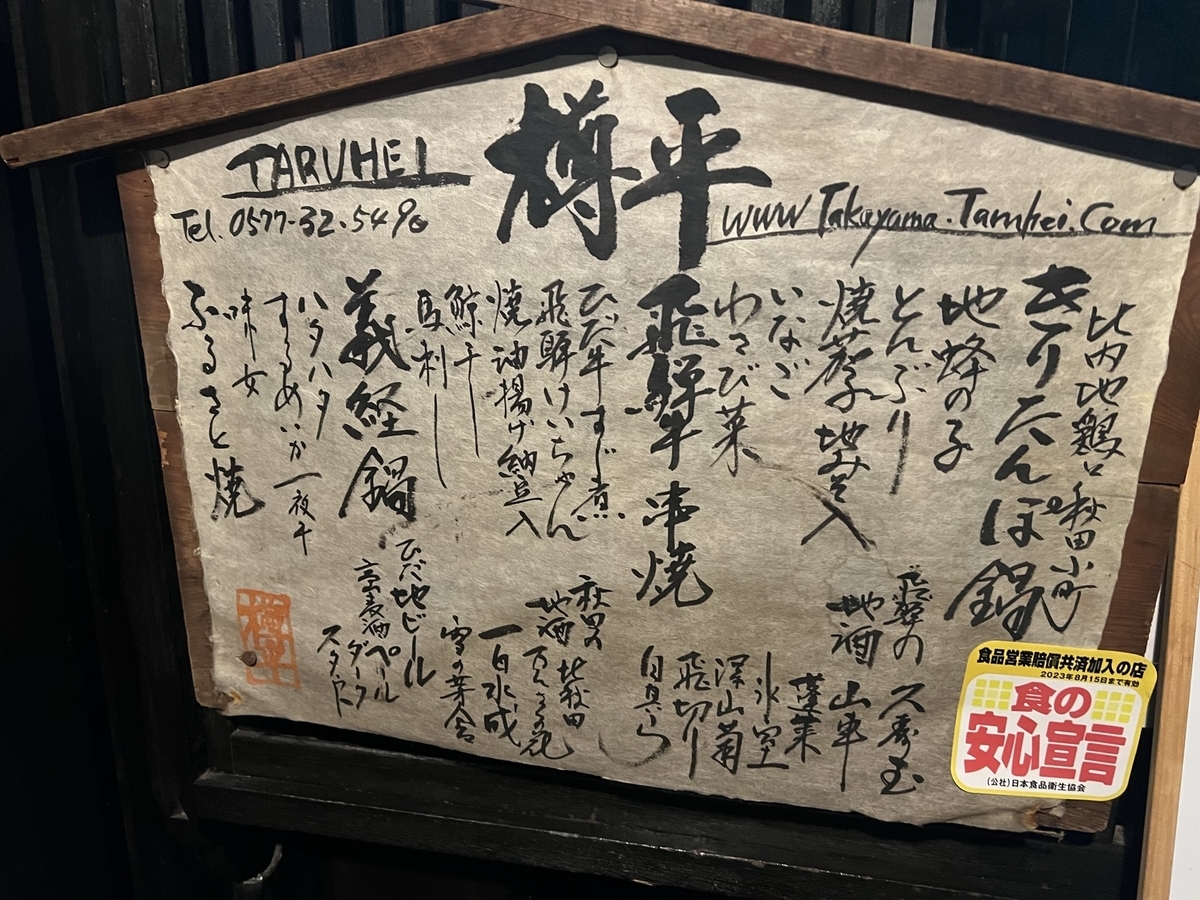 樽平
TARUHEI
Tel. 0577-32-5490
www.Takayama-Taruhei.Com
比内地鶏と秋田小町
きりたんぽ鍋
地蜂の子
とんぶり
焼茄子地みそ入
いなご
わさび菜
飛騨牛串焼
ひだ牛すじ煮
飛騨けいちゃん
焼油揚げ納豆入
鯨千
馬刺し
義経鍋
ハタハタ
するめいか一夜干
味女
ふるさと焼
飛騨の
地酒
久寿玉
山車
蓬莱
氷室
深山菊
飛切り
秋田の
地酒
北秋田
一白水成
雪の茅舎
ひだ地ビール
高麦酒
ペール
ダーク
スタウト
食品営業賠償共済加入の店
2023年8月15日まで有効
食の
安心宣言
(公社)日本食品衛生協会